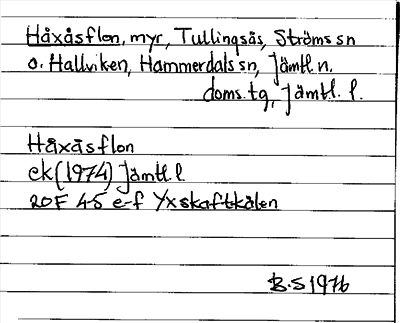 Håxåsflon, myr, Tullingsås, Ströms sn
o. Hallviken, Hammerdals sn, Jämtl. n.
doms. tg, Jämtl. l.
Håxåsflon
ek (1974) Jämtl. l
20F 4-5 e-f Yxskaftkälen
B.S 1976